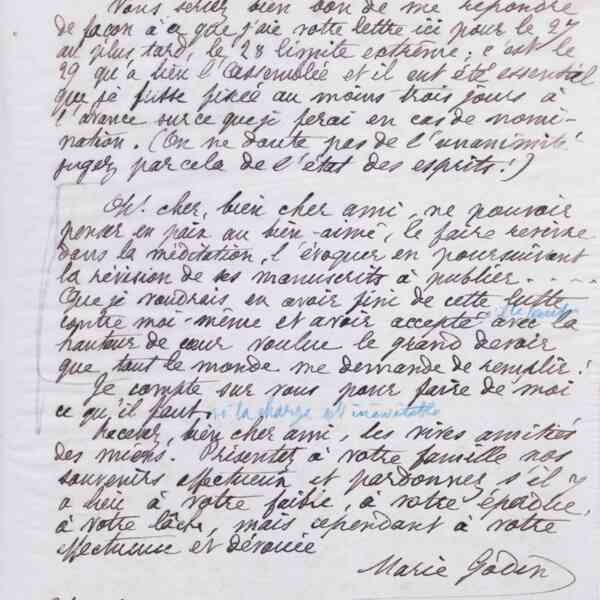 Vous seriez bien bon de me répondre
de façon à ce que j'aie votre lettre ici pour le 27
au plus tard, le 28 limite extrême ; c'est le
29 qu'a lieu l'Assemblée et il eut été essentiel
que je fusse fixée au moins trois jours à
l'avance sur ce que je ferai en cas de nomi-
nation. (On ne doute pas de l'unanimité
jugez par cela de l'état des esprits !)
Oh. cher, bien cher ami, ne pouvoir
penser en paix au bien-aimé, le faire revivre
dans la méditation, l'évoquer en poursuivant
la révision de ses manuscrits à publier . . . .
Que je voudrais en avoir fini de cette lutte
contre moi-même et avoir accepté s'il le faut avec la
hauteur de cœur voulue le grand devoir
que tout le monde me demande de remplir !
Je compte sur vous pour faire de moi
ce qu'il faut. si la charge est inévitable
Recevez, bien cher ami, les vives amitiés
des miens. Présentez à votre famille nos
souvenirs affectueux et pardonnez s'il y
a lieu à votre faible, à votre éperdue,
à votre lâche, mais cependant à votre
affectueuse et dévouée
Marie Godin